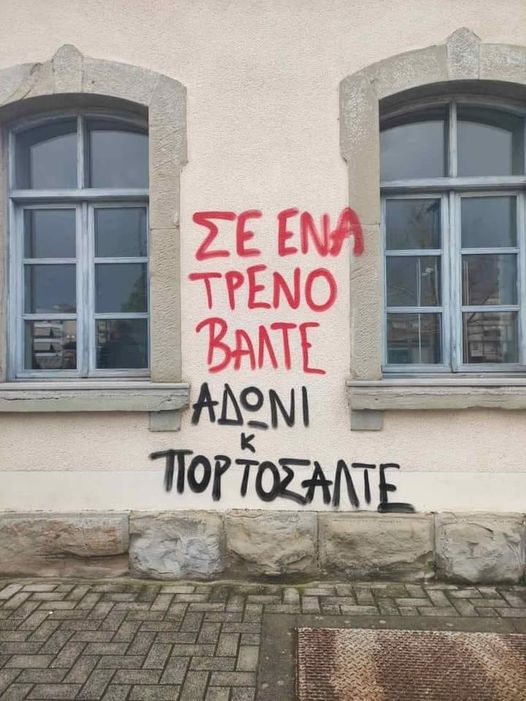 ΣΕ ΕΝΑ
ΤΡΕΝΟ
ΒΑΛΤΕ
ΑΔΩΝΙ
Κ
ΠΟΡΤΟΣΑΛΤΕ